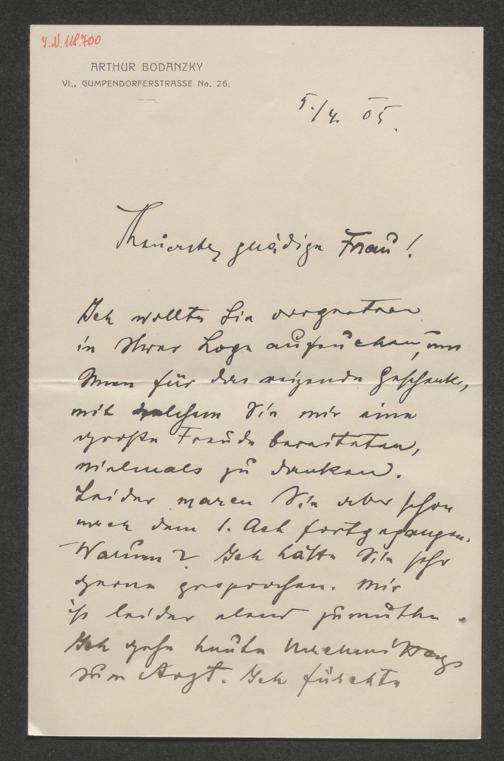 J.N. 118.700
ARTHUR BODANZKY
VI., GUMPENDORFERSTRASSE No. 26.
5./4. 05.
Theuerste, gnädige Frau!
Ich wollte Sie vorgestern
in Ihrer Loge aufsuchen, um
Ihnen für das reizende Geschenk,
mit welchem Sie mir eine
große Freude bereiteten,
vielmals zu danken.
Leider waren Sie aber schon
nach dem 1. Act fortgegangen.
Warum? Ich hätte Sie sehr
gerne gesprochen. Mir
is leider elend zumuthe.
Ich gehe heute Nachmittags
zum Arzt. Ich fürchte